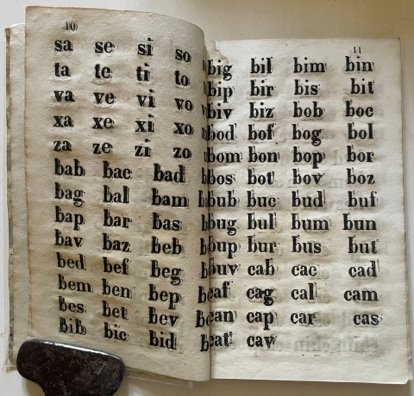 10
sa se si so
ta te ti to
va ve vi vo
xa xe xi xo
za ze zi zo
bab bac bad
bag bal bam
bap bar bas
bav baz beb
bed bef beg
bem ben bep
bes bet bev
bib bic bid
11
big bil bim bin
bip bir bis bit
biv biz bob boc
bod bof bog bol
bom bon bop bor
bos bot bov boz
bub buc bud buf
bug bul bum bun
bup bur bus but
buv cab cac cad
caf cag cal cam
can cap car cas
cat cav